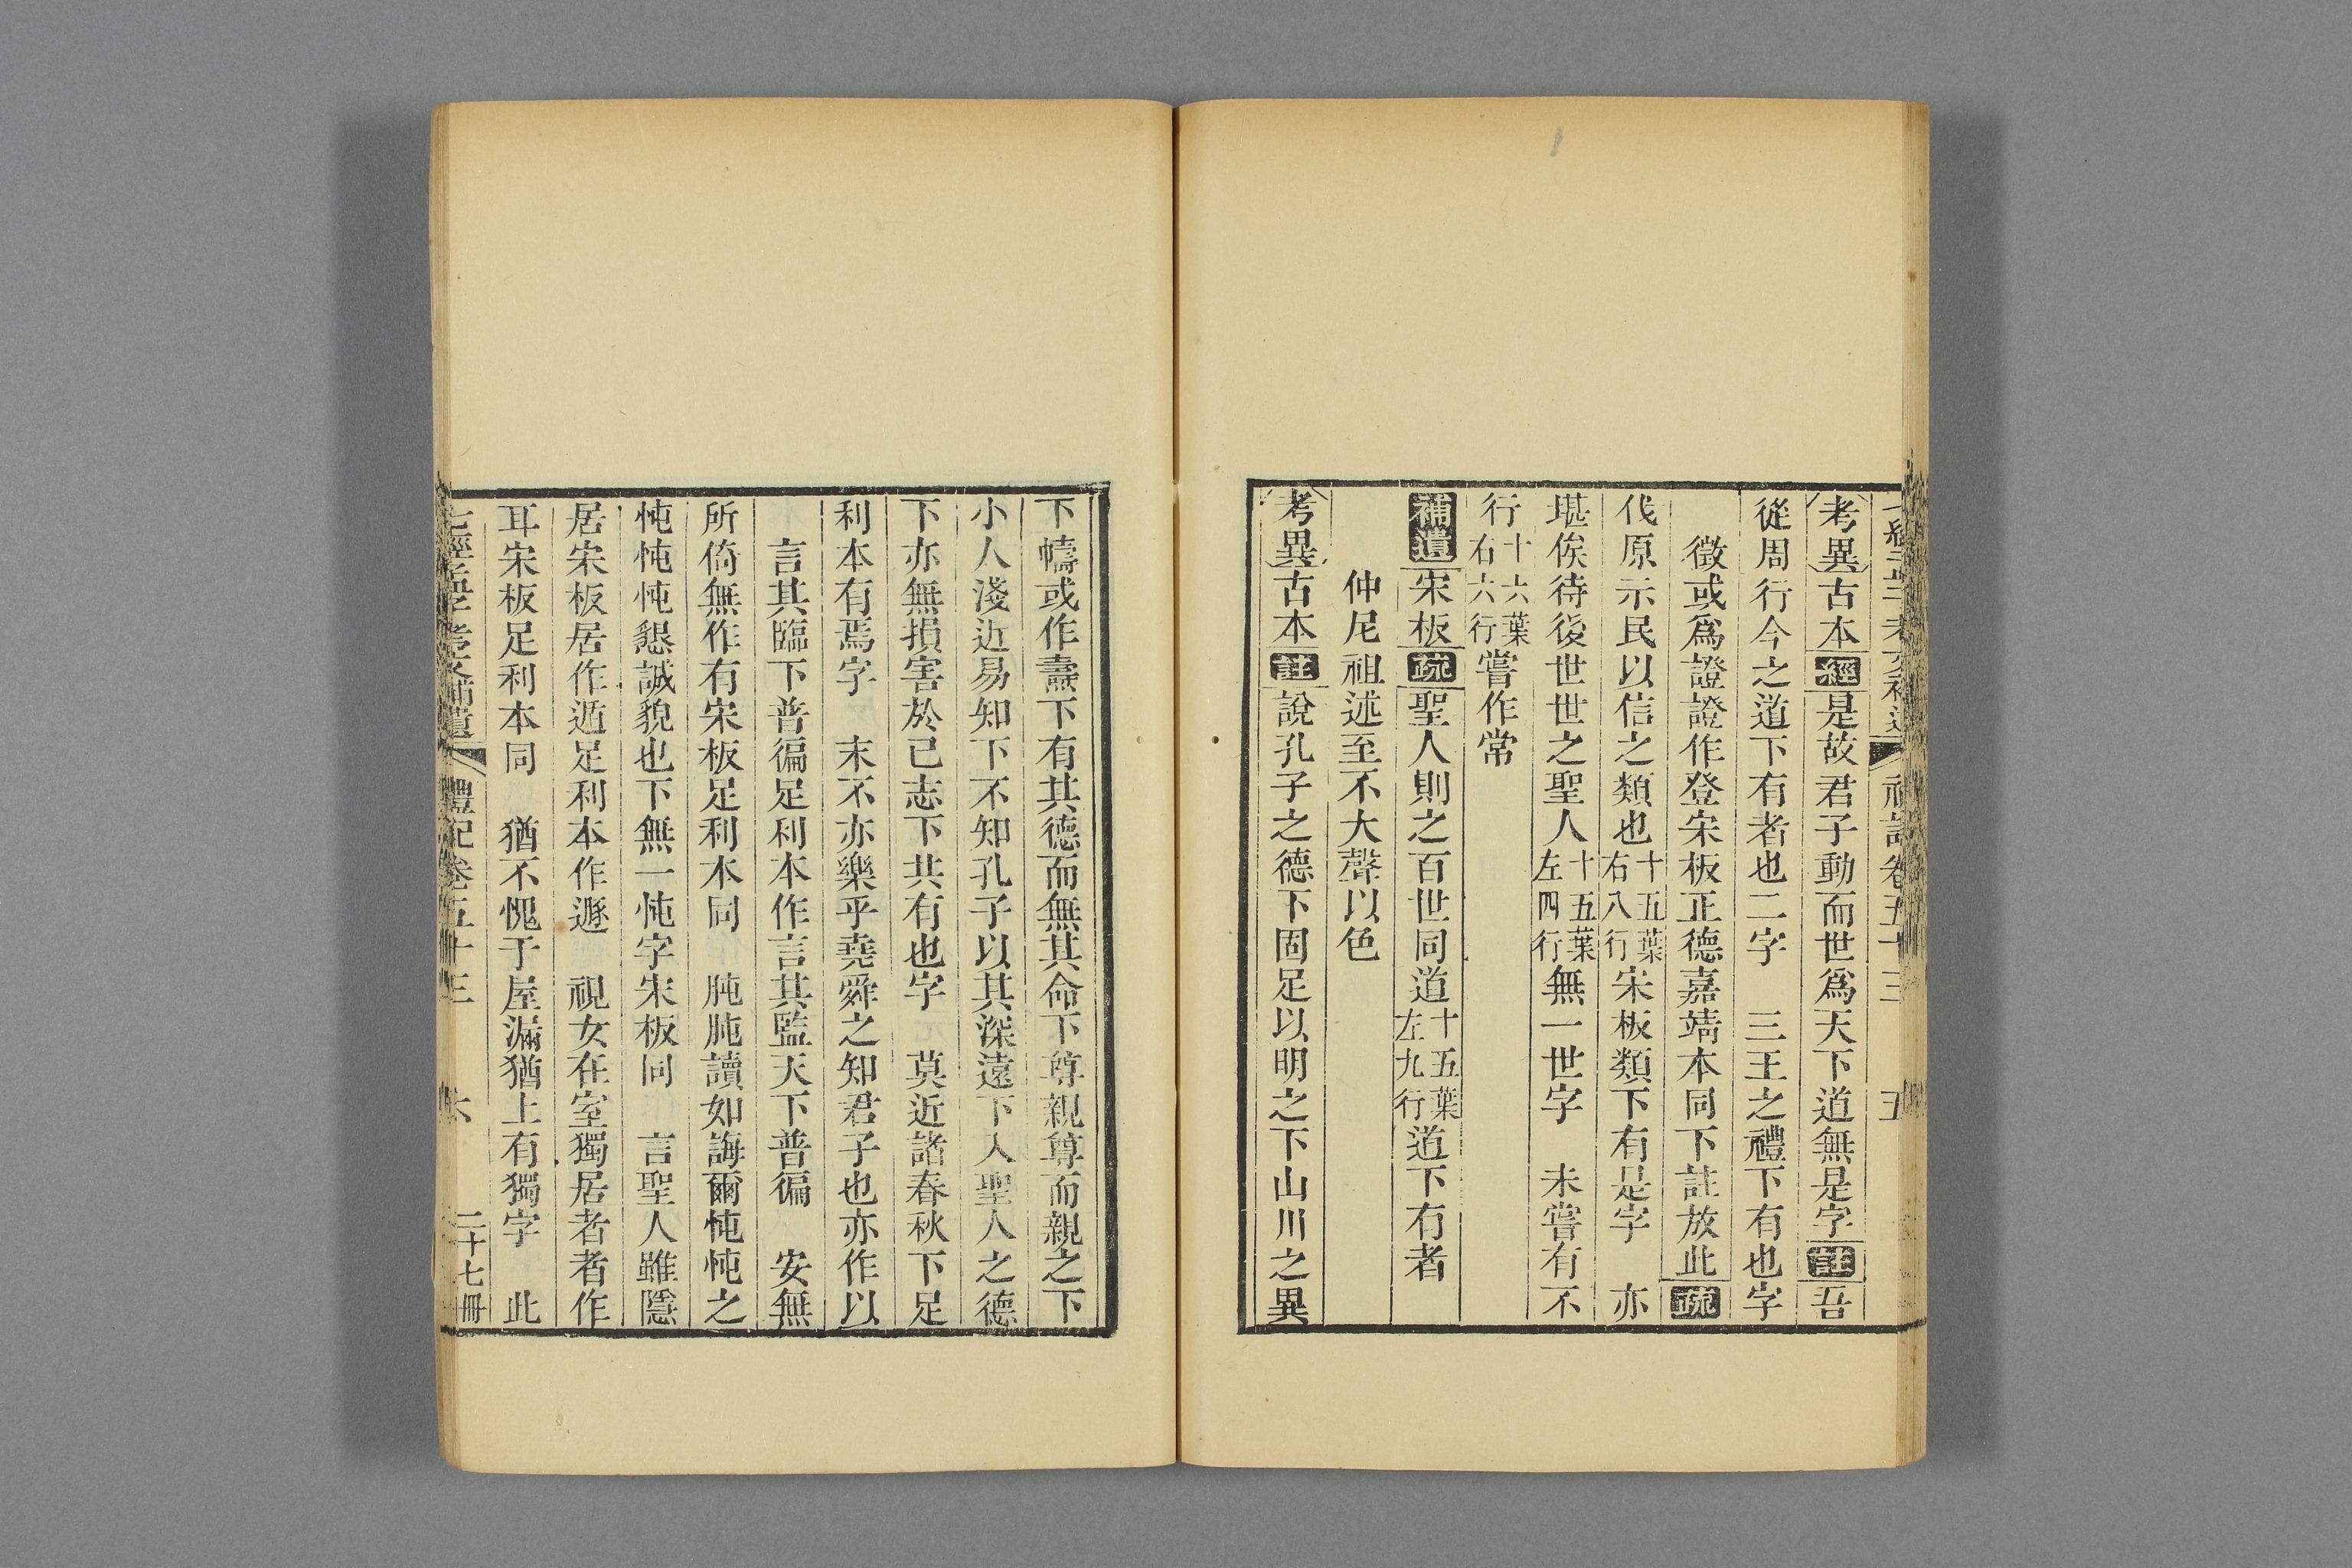 考異古本經是故君子動而世爲天下道無是字註吾
從周行今之道下有者也二字　三王之禮下有也字
徵或爲證證作登宋板正德嘉靖本同下註放此疏
伐原示民以信之類也十五葉右八行宋板類下有是字　亦
堪俟待後世世之聖人十五葉左四行無一世字　未嘗有不
行十六葉右六行嘗作常
補遺宋板疏聖人則之百世同道十五葉左九行道下有者
仲尼祖述至不大聲以色
考異古本註說孔子之德下固足以明之下山川之異
下幬或作燾下有其德而無其命下尊親尊而親之下
小人淺近易知下不知孔子以其深遠下人聖人之德
下亦無損害於己志下共有也字　莫近諸春秋下足
利本有焉字　末不亦樂乎堯舜之知君子也亦作以
言其臨下普徧足利本作言其監天下普徧　安無
所倚無作有宋板足利本同　肫肫讀如誨爾忳忳之
忳忳忳懇誠貌也下無一忳字宋板同　言聖人雖隱
居宋板居作遁足利本作遯　視女在室獨居者者作
耳宋板足利本同　猶不愧于屋漏猶上有獨字　此
七經孟子考文補遺　禮記卷五十三　六　二十七冊